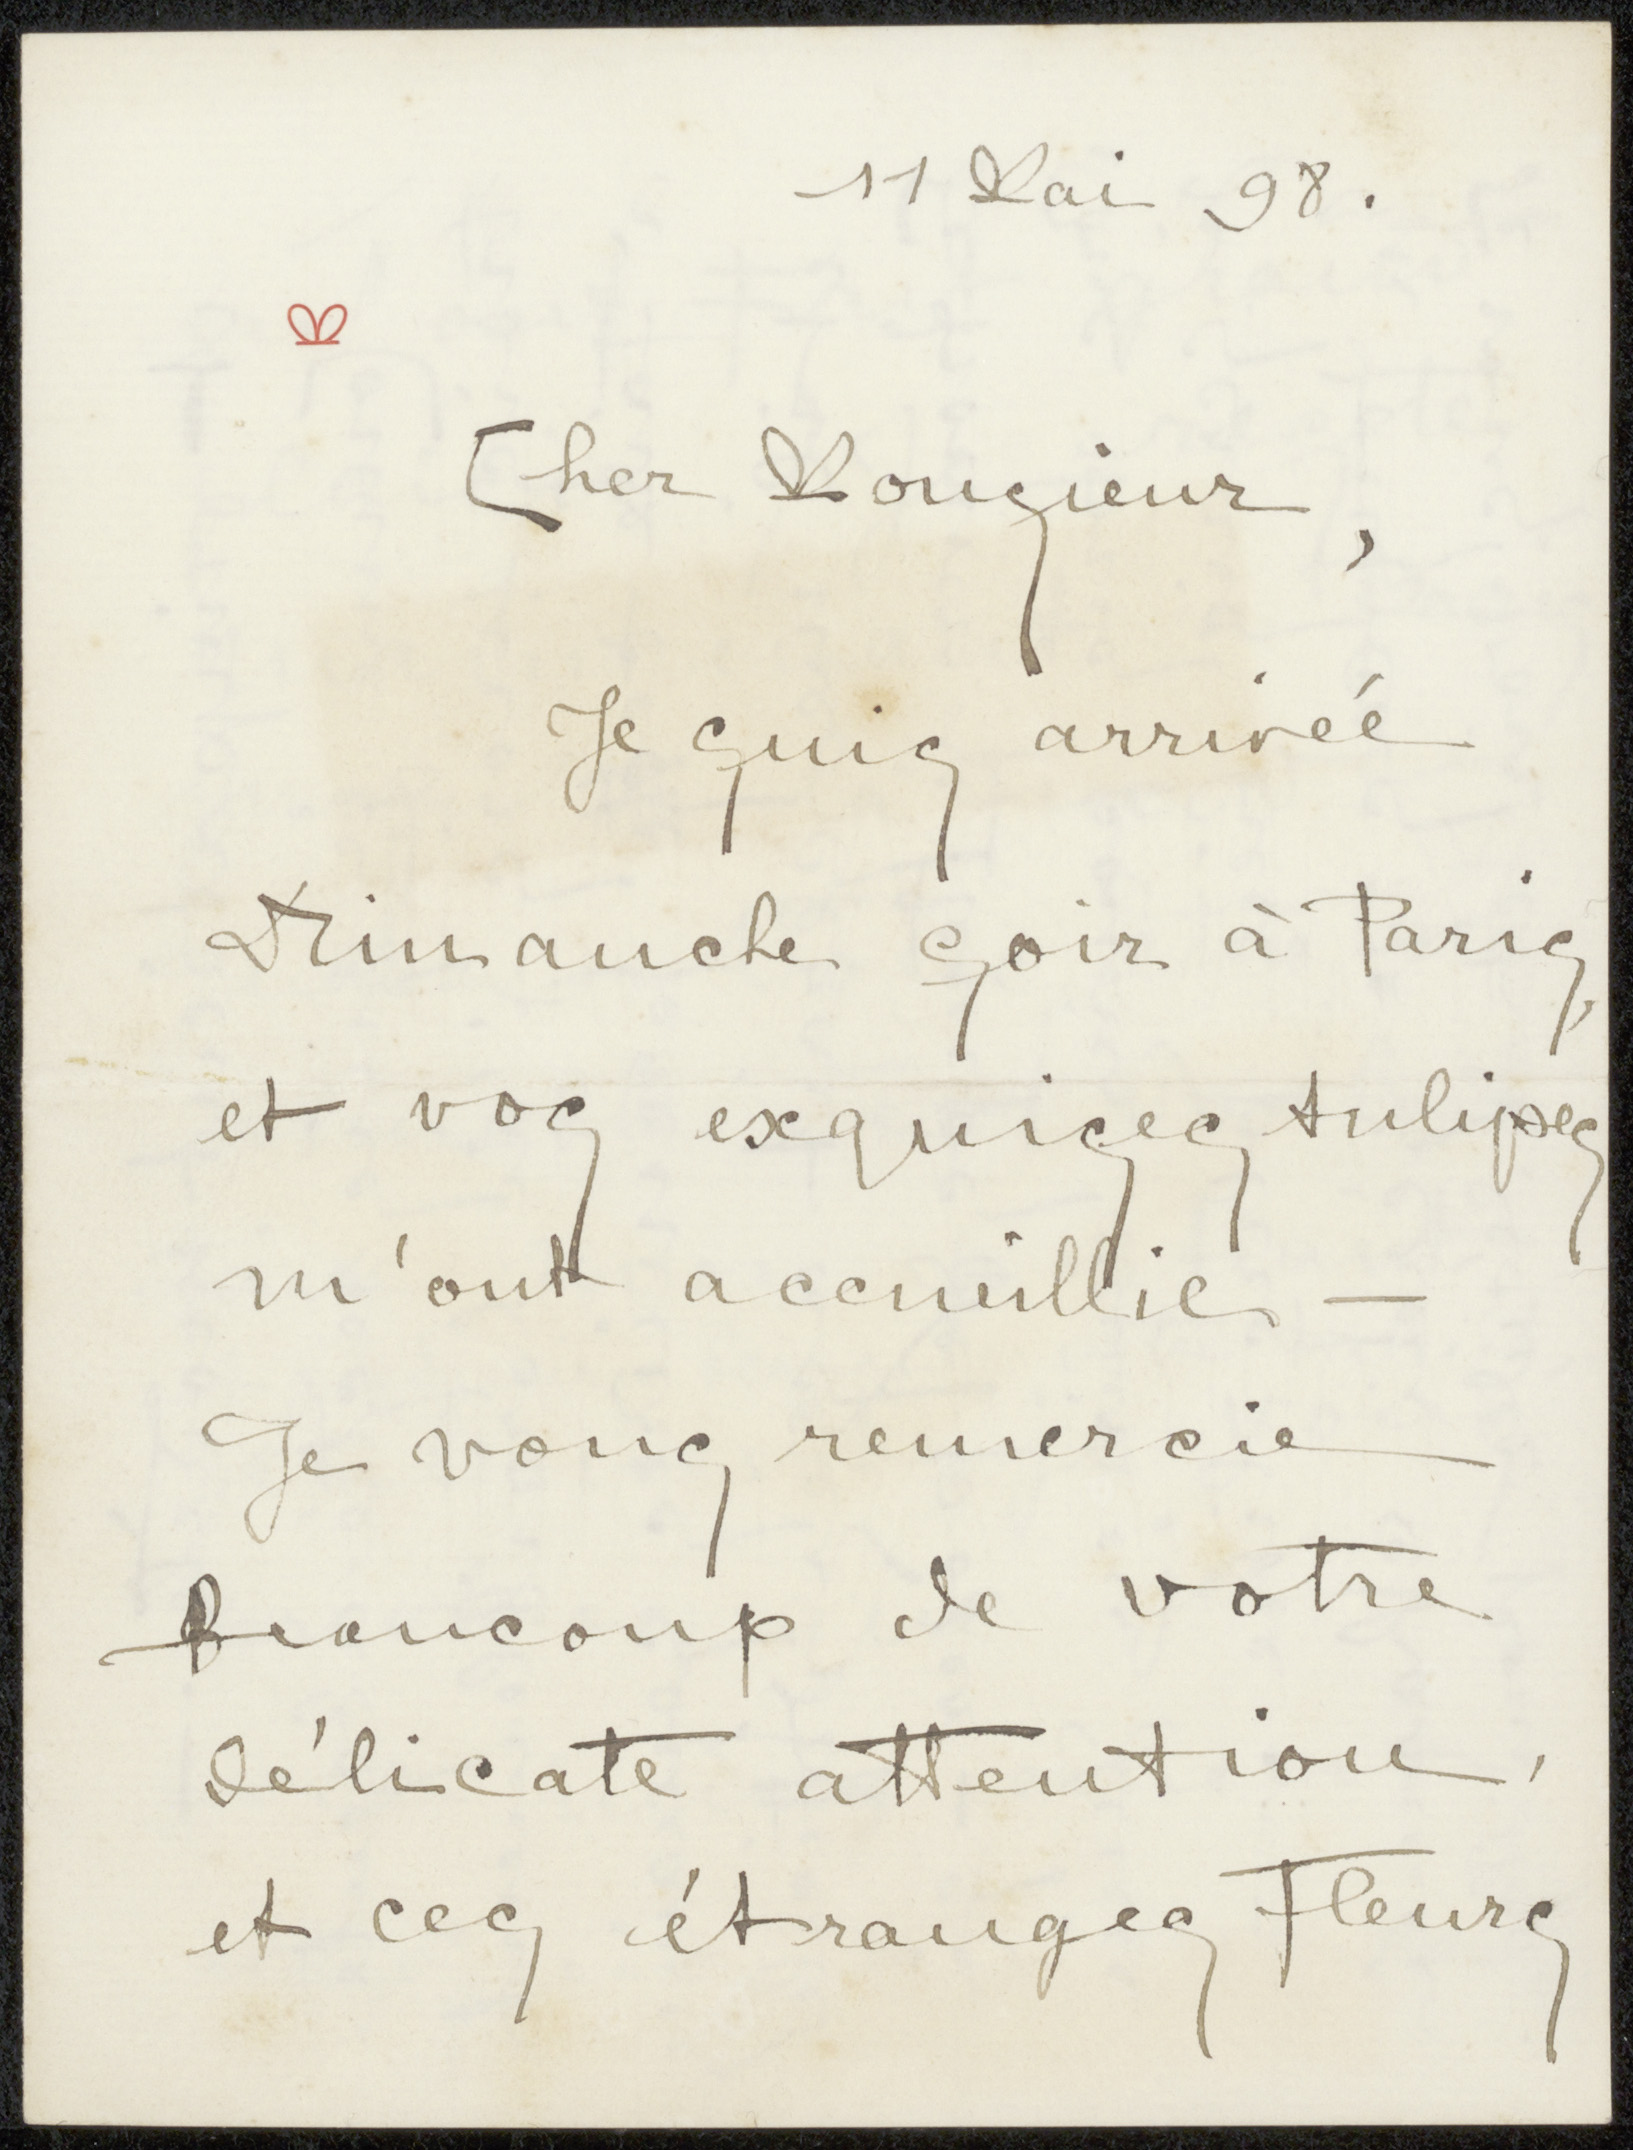 11 Mai 98.
Cher Monsieur,
Je suis arrivée
Dimanche soir à Paris,
et vos exquises tulipes
m'ont accueillie —
Je vous remercie
beaucoup de votre
délicate attention,
et ces étranges Fleurs